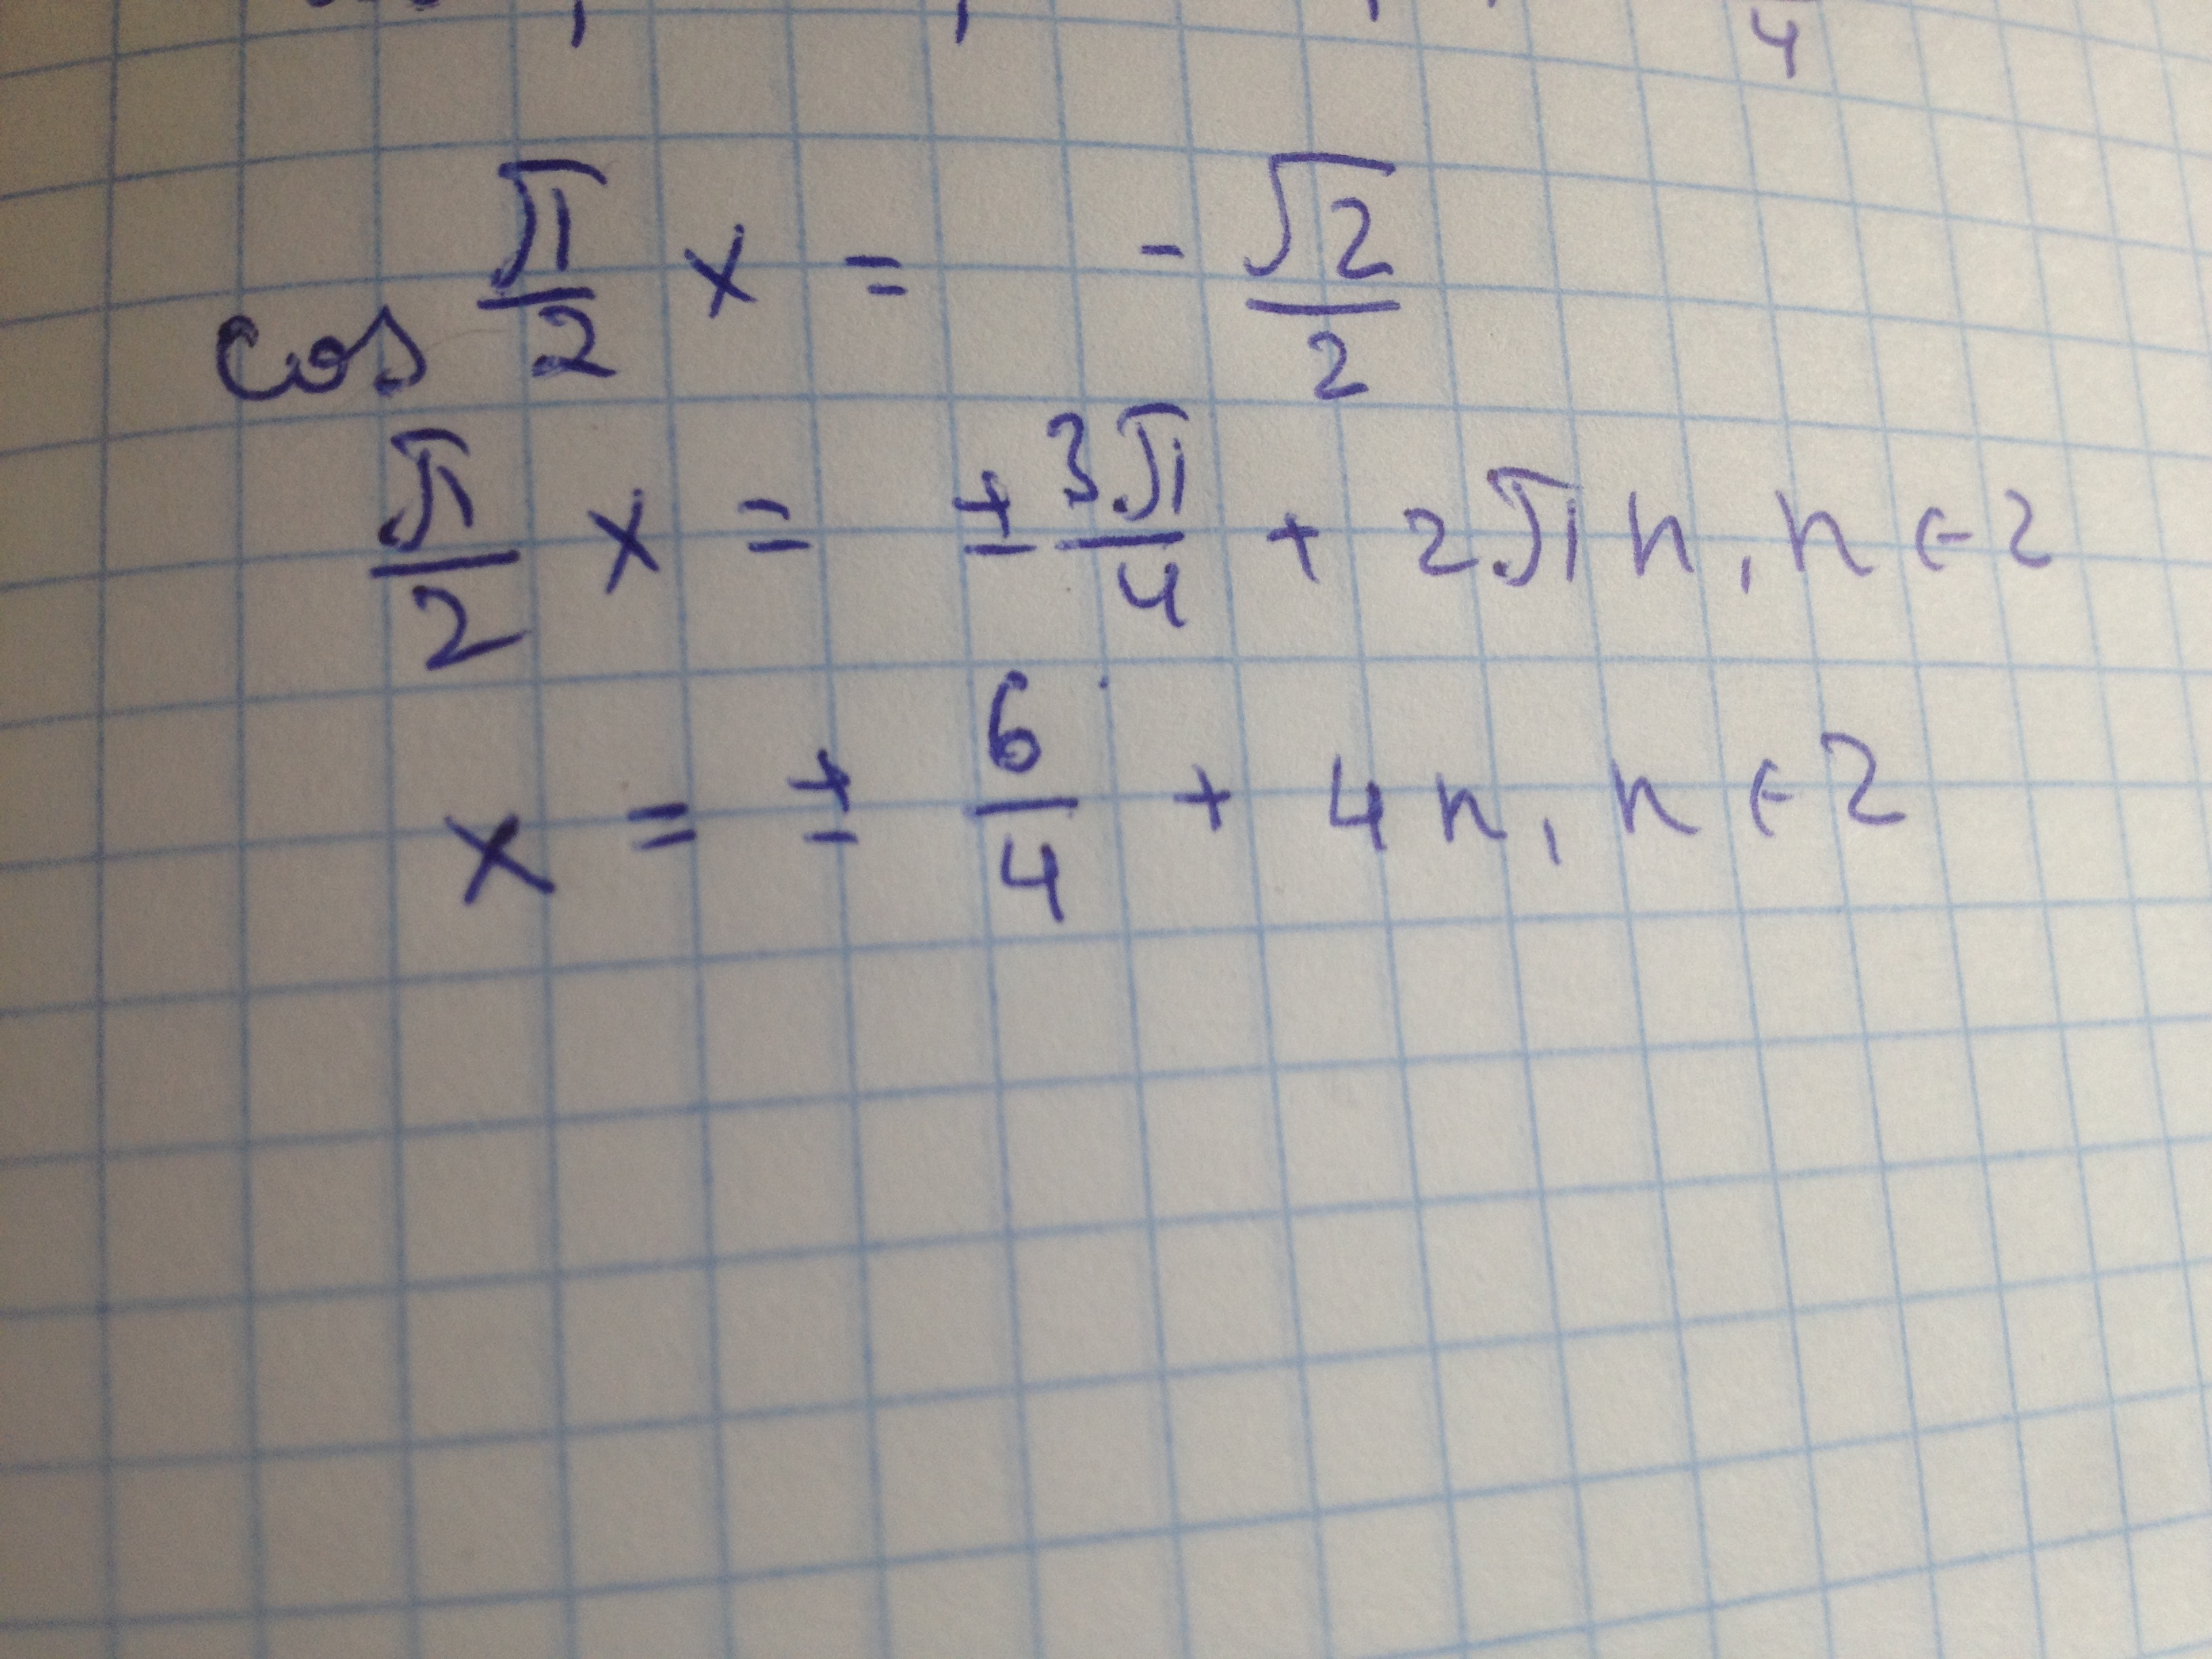 4
cos π/2 x = - √2/2
π/2 x = ± 3π/4 + 2πn, n ∈ Z
x = ± 6/4 + 4n, n ∈ Z